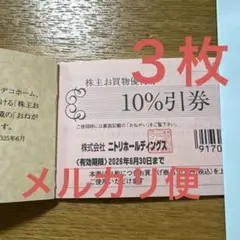 3枚
デコホーム、
ける「株主お
載の「おねが
す。
025年6月
株主お買物優待
10%引券
ご使用時には裏面記載の「おねがい」をご覧下さい。
株式会社 ニトリホールディングス
〈有効期限〉2026年6月30日まで
9170
メルカリ便